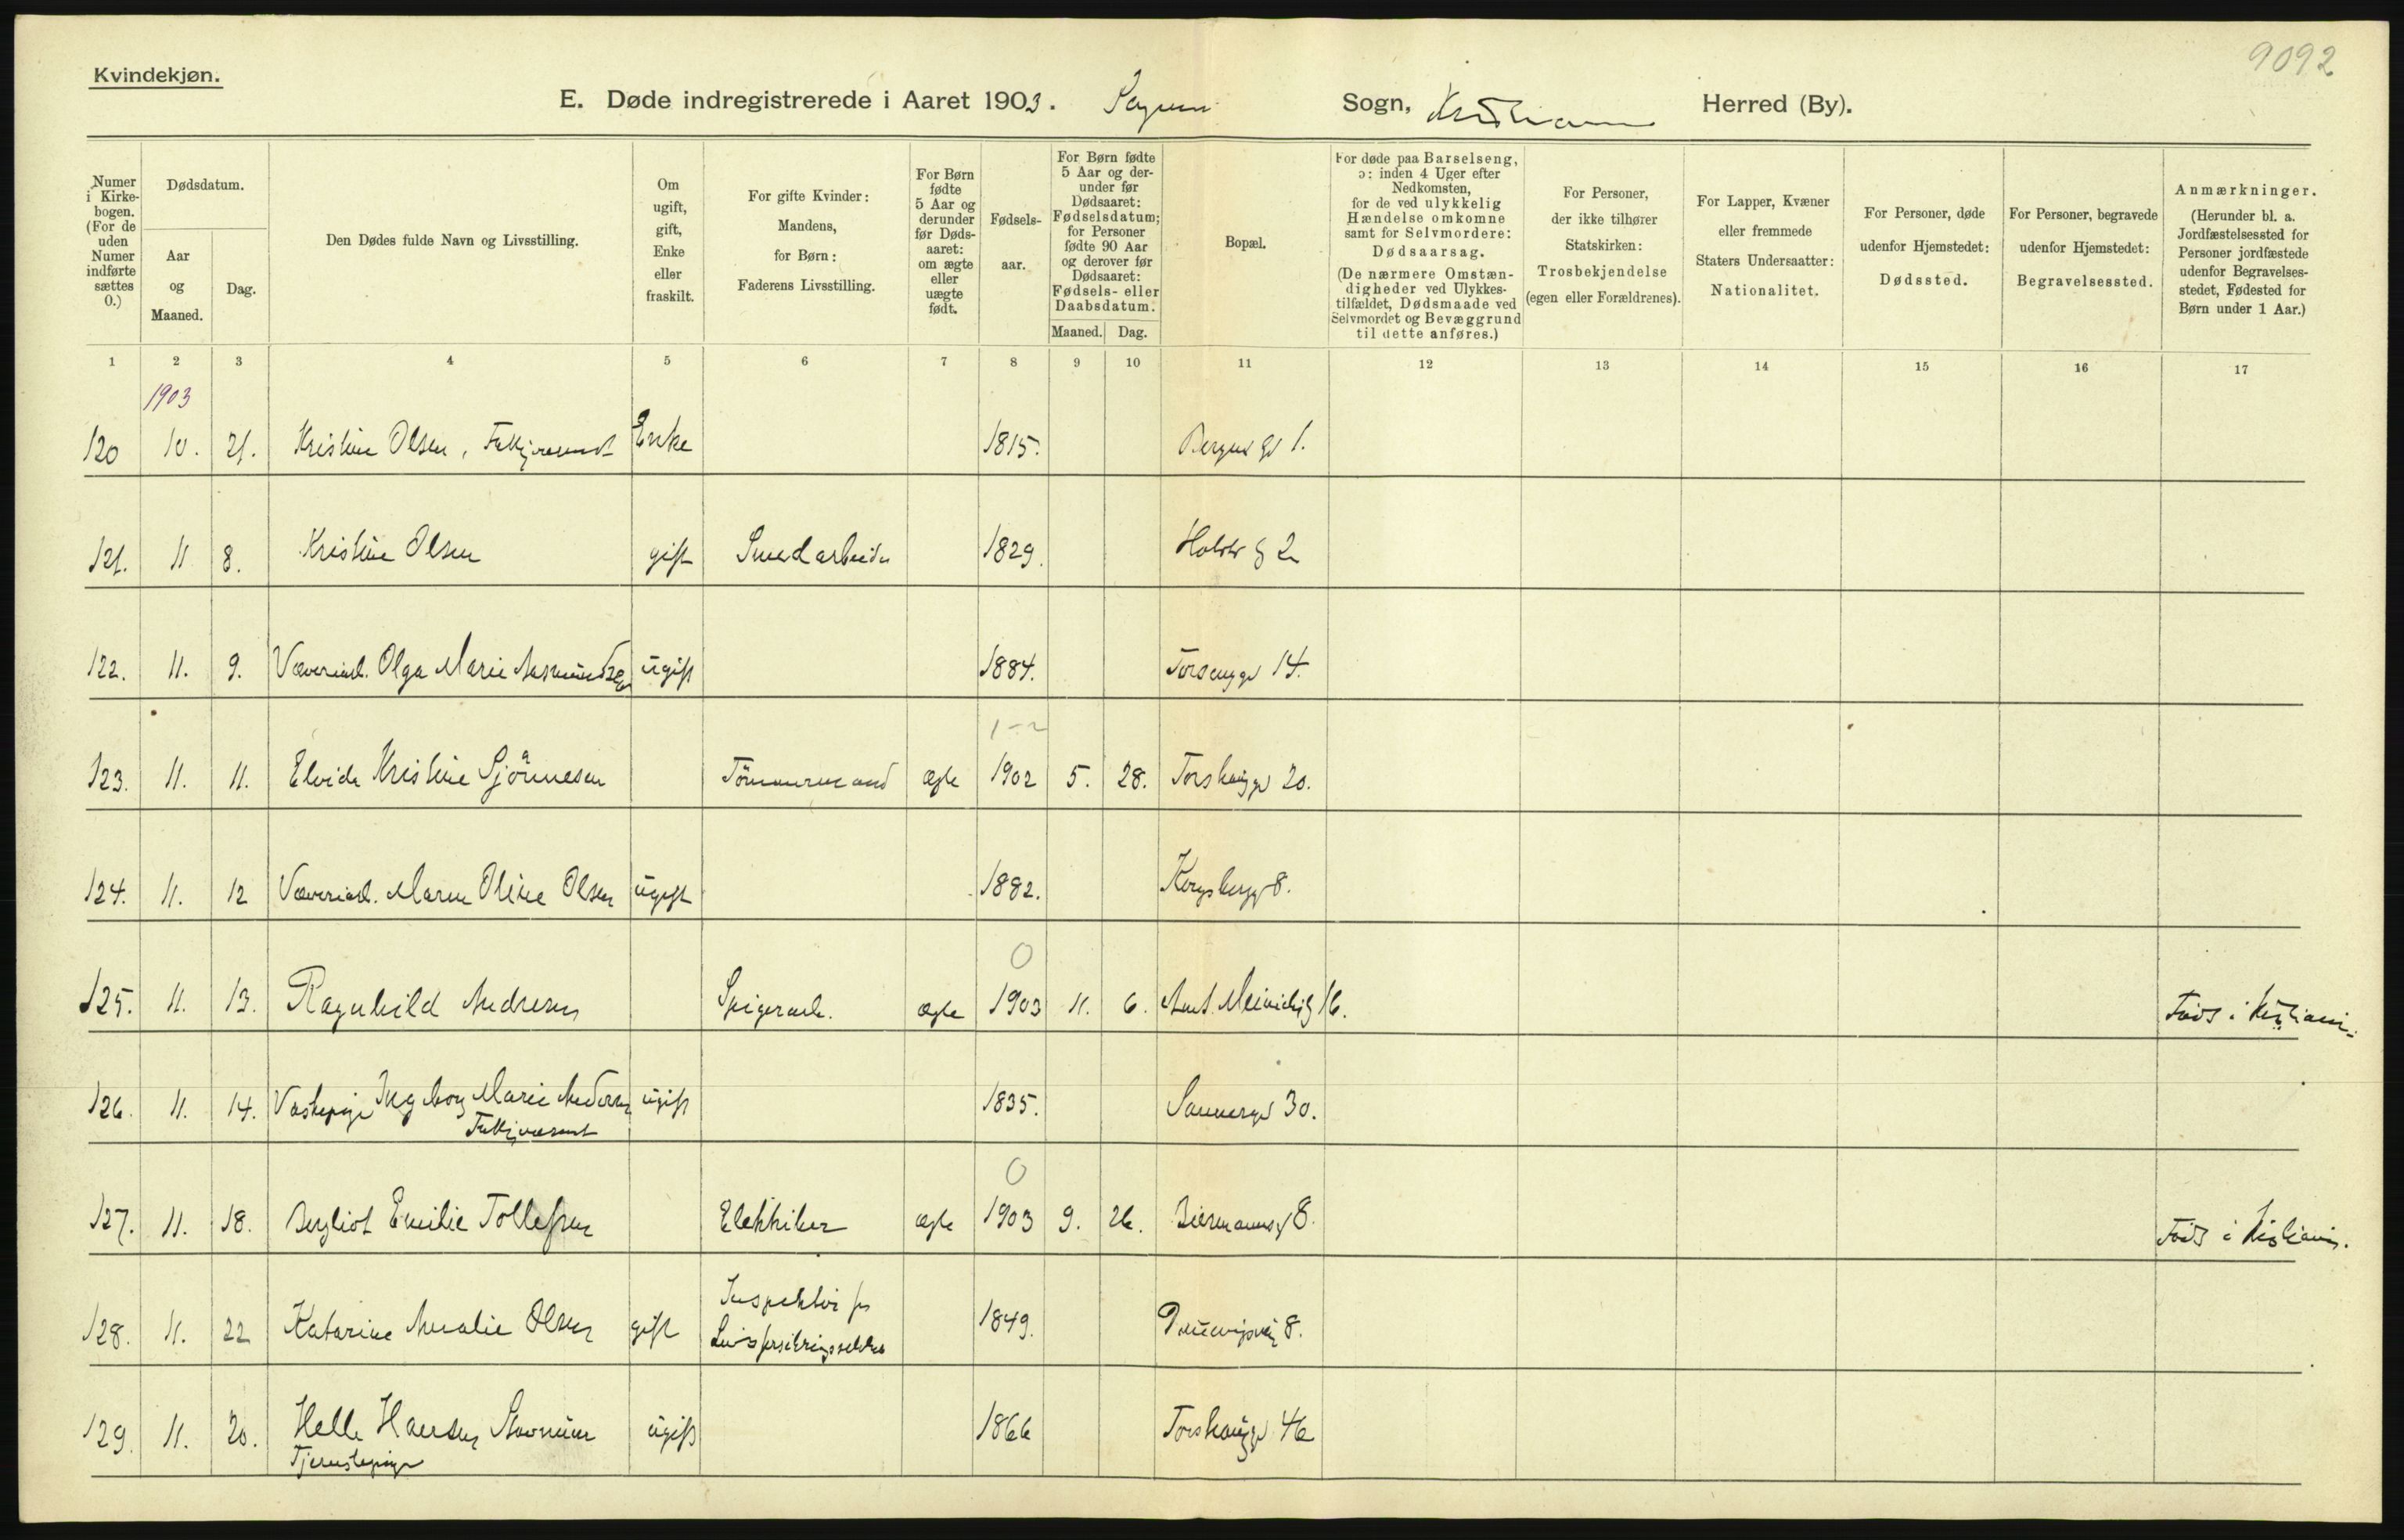 9092
Kvindekjøn.
E. Døde indregistrerede i Aaret 1903. Sagene Sogn, Kristiania Herred (By).
Numer i Kirkebogen. (For de uden Numer indførte sættes 0.)
Dødsdatum.
Aar og Maaned.
Dag.
Den Dødes fulde Navn og Livsstilling.
Om ugift, gift, Enke eller fraskilt.
For gifte Kvinder: Mandens, for Børn: Faderens Livsstilling.
For Børn fødte 5 Aar og derunder før Dødsaaret: om ægte eller uægte født.
Fødselsaar.
For Børn fødte 5 Aar og derunder før Dødsaaret: Fødselsdatum; for Personer fødte 90 Aar og derover før Dødsaaret: Fødsels- eller Daabsdatum.
Maaned. Dag.
Bopæl.
For døde paa Barselseng, ɔ: inden 4 Uger efter Nedkomsten, for de ved ulykkelig Hændelse omkomne samt for Selvmordere: Dødsaarsag. (De nærmere Omstændigheder ved Ulykkestilfældet, Dødsmaade ved Selvmordet og Bevæggrund til dette anføres.)
For Personer, der ikke tilhører Statskirken: Trosbekjendelse (egen eller Forældrenes).
For Lapper, Kvæner eller fremmede Staters Undersaatter: Nationalitet.
For Personer, døde udenfor Hjemstedet: Dødssted.
For Personer, begravede udenfor Hjemstedet: Begravelsessted.
Anmærkninger. (Herunder bl. a. Jordfæstelsessted for Personer jordfæstede udenfor Begravelsesstedet, Fødested for Børn under 1 Aar.)
1 2 3 4 5 6 7 8 9 10 11 12 13 14 15 16 17
1903
120 10. 21. Kristine Olsen, Enke 1815. 1.
121. 11 8. Kristine Olsen gift Smedarbeider 1829. Holsts g 2
122. 11. 9. Væveriarb. Olga Marie ugift 1884. 14.
1-2
123. 11. 11. Elvida Kristine Sjönnesen Tömmermand ægte 1902 5. 28. Torshauggd 20.
124. 11. 12 Væveriarb. Maren Oline Olsen ugift 1882. 8.
0
125. 11. 13. Ragnhild Andresen Spigerarb. ægte 1903 11. 6. 16. Föds i Kristiania
126. 11. 14. Vaskepige Ingeborg Marie Andersen ugift 1835. Sannergd 30.
0
127. 11. 18. Bergliot Emilie Tollefsen Elektriker ægte 1903 9. 26. Biermannsg 8. Föds i Kristiania.
128. 11. 22 Katarine Amalie Olsen gift Inspektör for 1849. 8.
Livsforsikringsselskab
129. 11. 20. Helle Hansen ugift 1866 Torshauggd 46
Tjenestepige